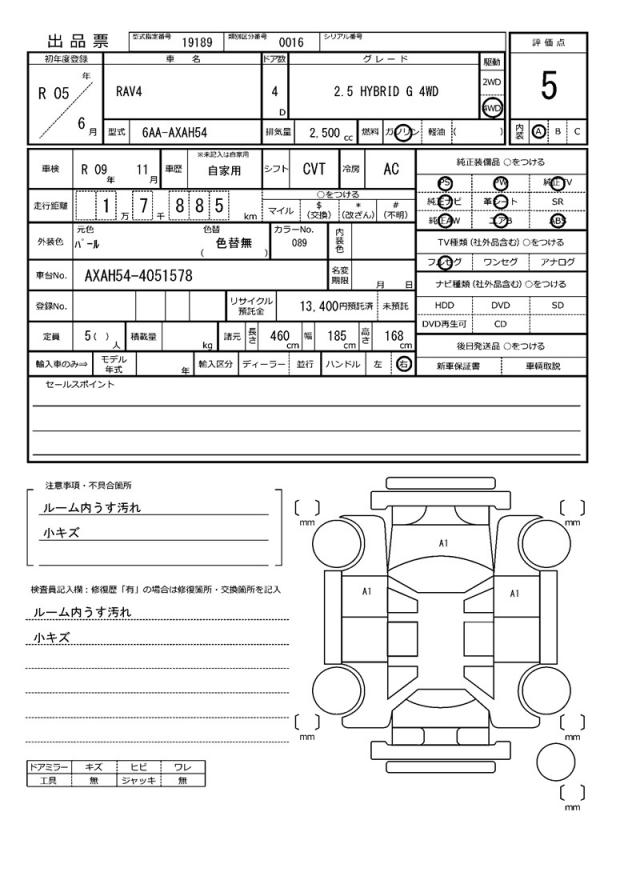 出品票 型式指定番号 19189 類別区分番号 0016 シリアル番号
評価点
5
内装 A B C
初年度登録 車名 ドア数 グレード 駆動
R 05 年 6 月 RAV4 4 D 2.5 HYBRID G 4WD 2WD 4WD
型式 6AA-AXAH54 排気量 2,500 cc 燃料 ガソリン 軽油 ( )
車検 R 09 年 11 月 車歴 ※未記入は自家用 自家用 シフト CVT 冷房 AC
走行距離 1 万 7 千 8 8 5 km ○をつける
マイル $ (交換) * (改ざん) # (不明)
外装色 元色 パール 色替 色替無 ( ) カラーNo. 089 内装色
車台No. AXAH54-4051578 名変期限 月 日
登録No. リサイクル預託金 13,400円預託済 未預託
定員 5( ) 人 積載量 kg 諸元 長さ 460 cm 幅 185 cm 高さ 168 cm
輸入車のみ⇒ モデル年式 年 輸入区分 ディーラー 並行 ハンドル 左 右
純正装備品 ○をつける
PS PW 純正TV
純正ナビ 革シート SR
純正AW エアB ABS
TV種類 (社外品含む) ○をつける
フルセグ ワンセグ アナログ
ナビ種類 (社外品含む) ○をつける
HDD DVD SD
DVD再生可 CD
後日発送品 ○をつける
新車保証書 車輌取説
セールスポイント
注意事項・不具合箇所
ルーム内うす汚れ
小キズ
検査員記入欄：修復歴「有」の場合は修復箇所・交換箇所を記入
ルーム内うす汚れ
小キズ
ドアミラー キズ ヒビ ワレ
工具 無 ジャッキ 無
[ ] mm [ ] mm
A1
A1 A1
[ ] mm [ ] mm
[ ] mm